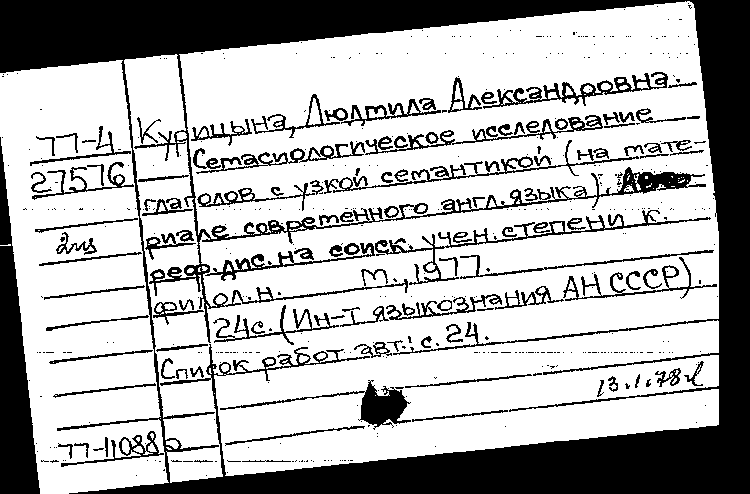 77-4
27576
2 из
Курицына, Людмила Александровна.
Семасиологическое исследование
глаголов с узкой семантикой (на мате-
риале современного англ. языка). Авто
реф. дис. на соиск. учен. степени к.
филол. н. М., 1977.
24с. (Ин-т языкознания АН СССР).
Список работ авт.: с. 24.
13.1.78
77-11088